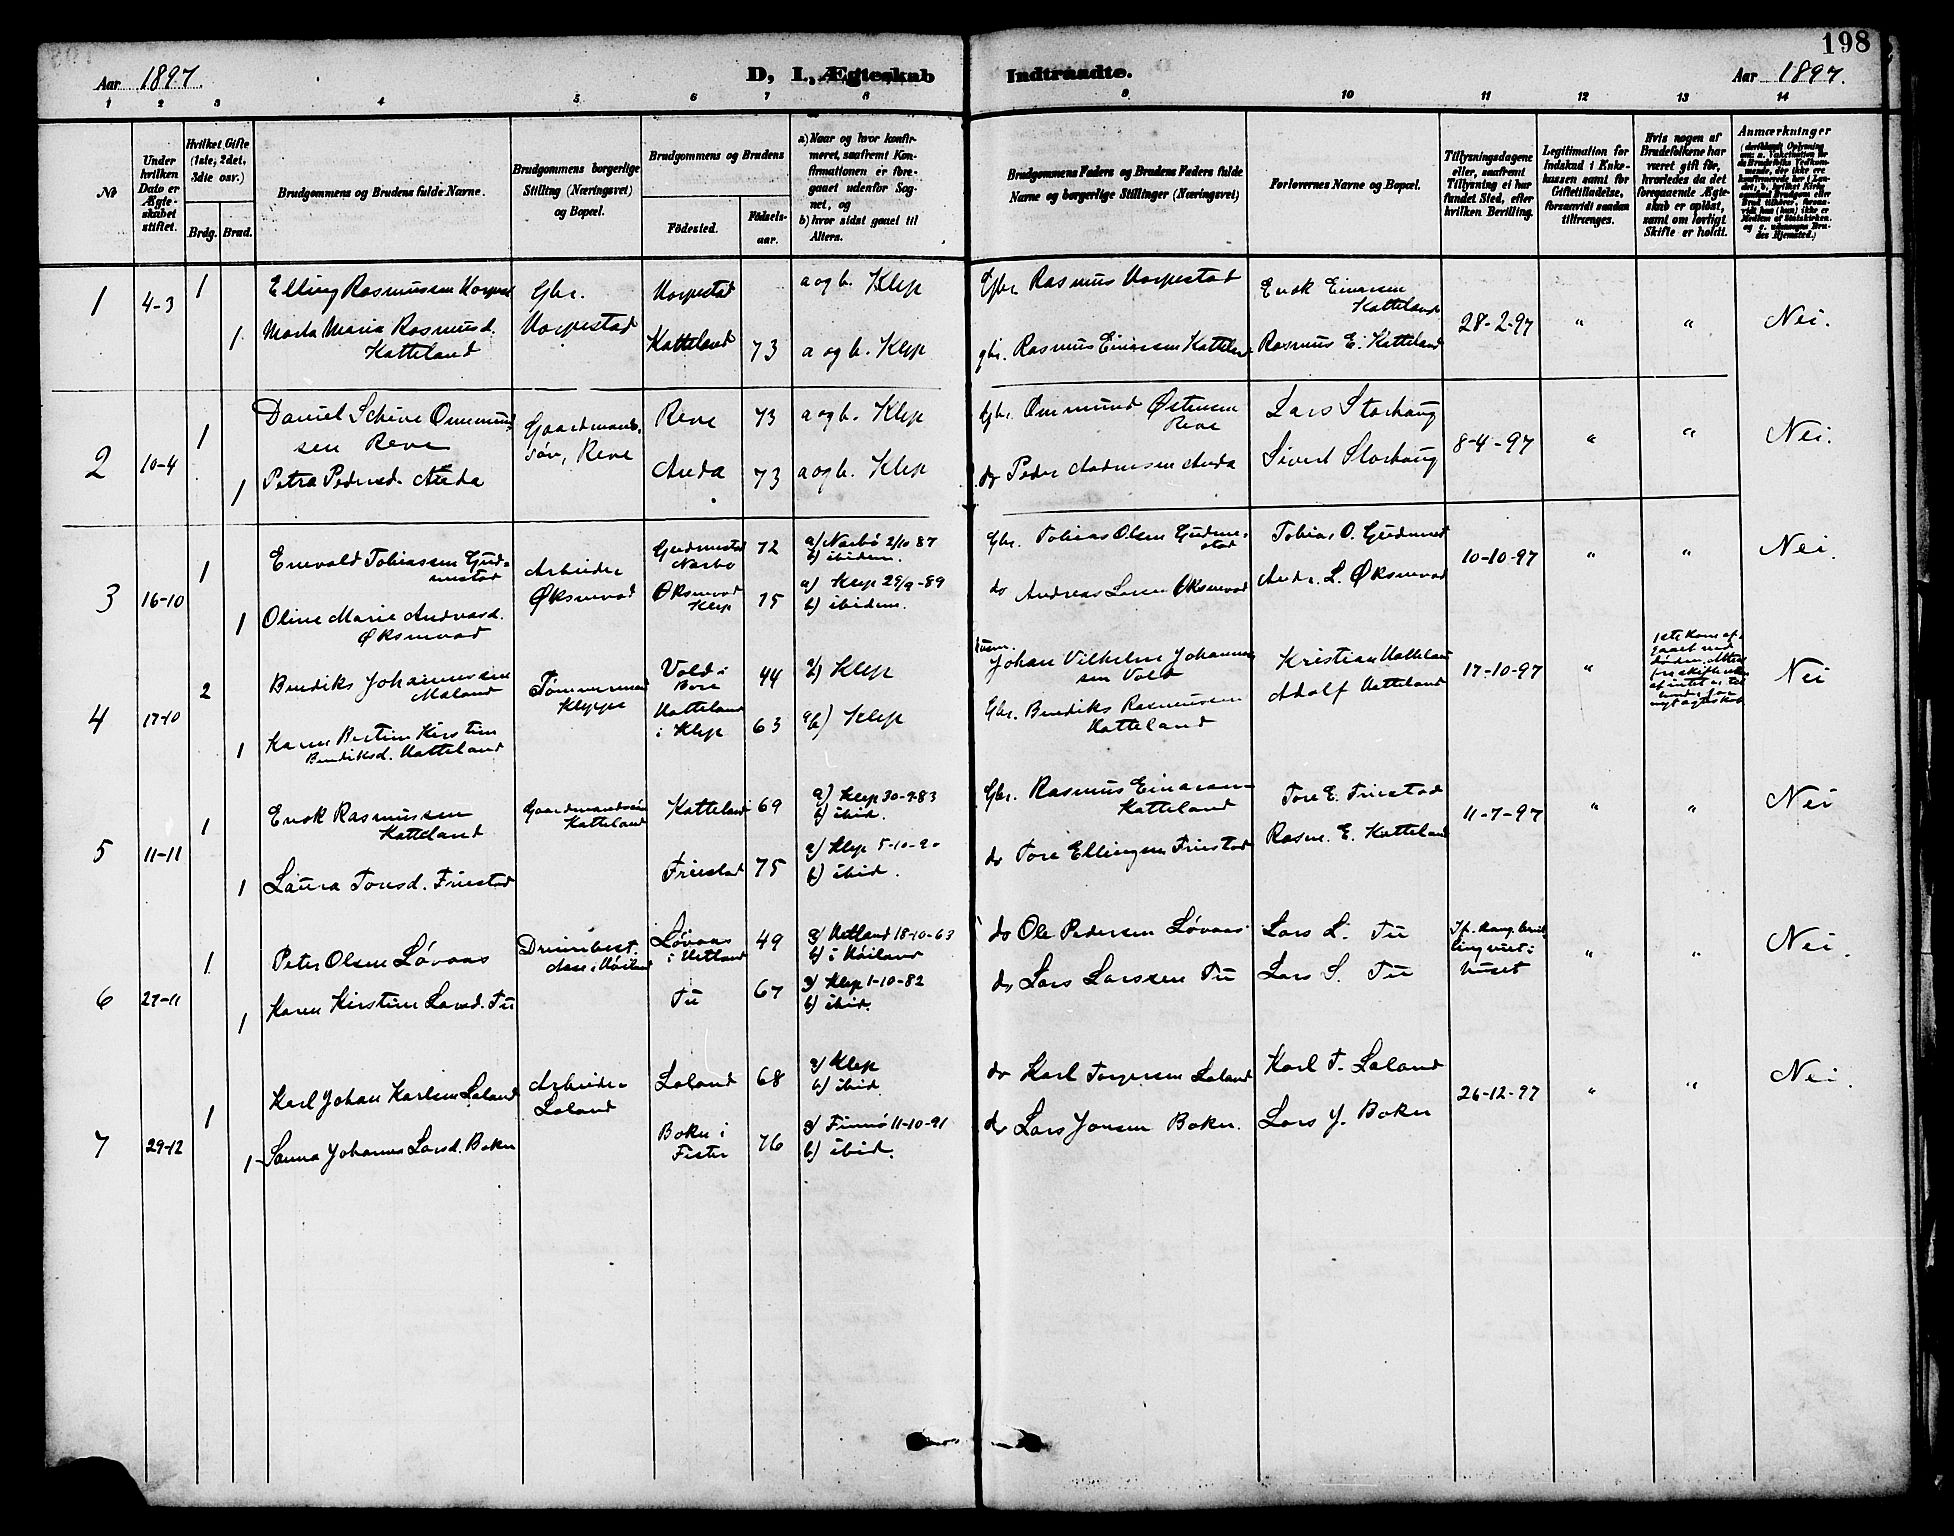 198
Aar 1897.
D, I., Ægteskab Indtraadte.
Aar 1897.
1 2 3 4 5 6 7 8 9. 10 11 12 13 14
No
Under hvilken Dato er Ægteskabet stiftet.
Hvilket Gifte (1ste, 2det, 3die osv.)
Brdg. Brud.
Brudgommens og Brudens fulde Navne.
Brudgommens borgerlige Stilling (Næringsvei) og Bopæl.
Brudgommens og Brudens
Fødested.
Fødselsaar.
a) Naar og hvor konfirmeret, saafremt Konfirmationen er foregaaet udenfor Sognet, og
b) hvor sidst gaaet til Alters.
Brudgommens Faders og Brudens Faders fulde Navne og borgerlige Stillinger (Næringsvei)
Forlovernes Navne og Bopæl.
Tillysningsdagene eller, saafremt Tillysning ei har fundet Sted, efter hvilken Bevilling.
Legitimation for Indskud i Enkekassen samt for Giftetilladelse, forsaavidt saadan tiltrænges.
Hvis nogen af Brudefolkene har været gift før, hvorledes da det foregaaende Ægteskab er opløst, samt om lovligt Skifte er holdt.
Anmærkninger
1 4-3 1
Elling Rasmussen
Gbr. Vorpestad
Vorpestad
a og b. Klep
Gbr. Rasmus Vorpestad
Enok Einarsen Katteland
1 Marta Maria Rasmusd. Katteland
Katteland 73
a og b. Klep
gbr. Rasmus Einarsen Katteland
Rasmus E. Katteland
28-2-97 " " Nei.
2 10-4 1
Daniel Schive Ommundsen Reve
Gaardmandssøn, Reve
Reve 73
a og b. Klep
Gbr. Ommund Østensen Reve
Lars Storhaug
1 Petra Pedersd. Anda
Anda 73
a og b. Klep
do Peder Andersen Anda
Sivert Storhaug
8-4-97 " " Nei.
3 16-10 1
Enevald Tobiassen Gudmestad
Arbeider Øksnevad
Gudmestad Nærbø 72
a) Nærbø 2/10 87
b) ibidem.
Gbr. Tobias Olsen Gudmestad
Tobias O. Gudmest
1 Oline Marie Andreasd. Øksnevad
Øksnevad Klep 75
a) Klep 29/9-89
b) ibidem.
do Andreas Larsen Øksnevad
Andr. L. Øksnevad
10-10-97 " " Nei.
4 17-10 2
Bendiks Johannessen Maland
Tømmermand Kleppe
Vold i Bore 44
a) Klep
Johan Vilhelm Johannessen Vold
Kristian Hatteland
1 Karen Bertine Kirstine Bendiksd. Hatteland
Hatteland i Klep 63
ab) Klep
Gbr. Bendiks Rasmussen Hatteland
Adolf Hatteland
17-10-97 "
Nei
5 11-11 1
Enok Rasmussen Katteland
Gaardmandssøn Katteland
Katteland 69
a) Klep 30-9-83
b) ibid.
Gbr. Rasmus Einarsen Katteland
Tore E. Friestad
1 Laura Toresd. Friestad
Friestad 75
a) Klep 5-10-90
b) ibid.
do Tore Ellingsen Friestad
Rasm. E. Katteland
11-7-97 " " Nei
6 27-11 1
Peter Olsen Løvaas
Løvaas i Hetland 49
a) Hetland 18-10-63
b) i Høiland
do Ole Pedersen Løvaas
Lars L. Tu
1 Karen Kirstine Larsd. Tu
Tu 67
a) Klep 1-10-82
b) ibid.
do Lars Larssen Tu
Lars S. Tu
" " Nei.
7 29-12 1
Karl Johan Karlsen Laland
Arbeider Laland
Laland 68
a) Klep
b) ibid
do Karl Torgersen Laland
Karl T. Laland
1 Sanna Johanne Larsd. Bokn
Bokn i Fister 76
a) Finnø 11-10-91
b) ibid.
do Lars Jonsen Bokn.
Lars J. Bokn
26-12-97 " " Nei.